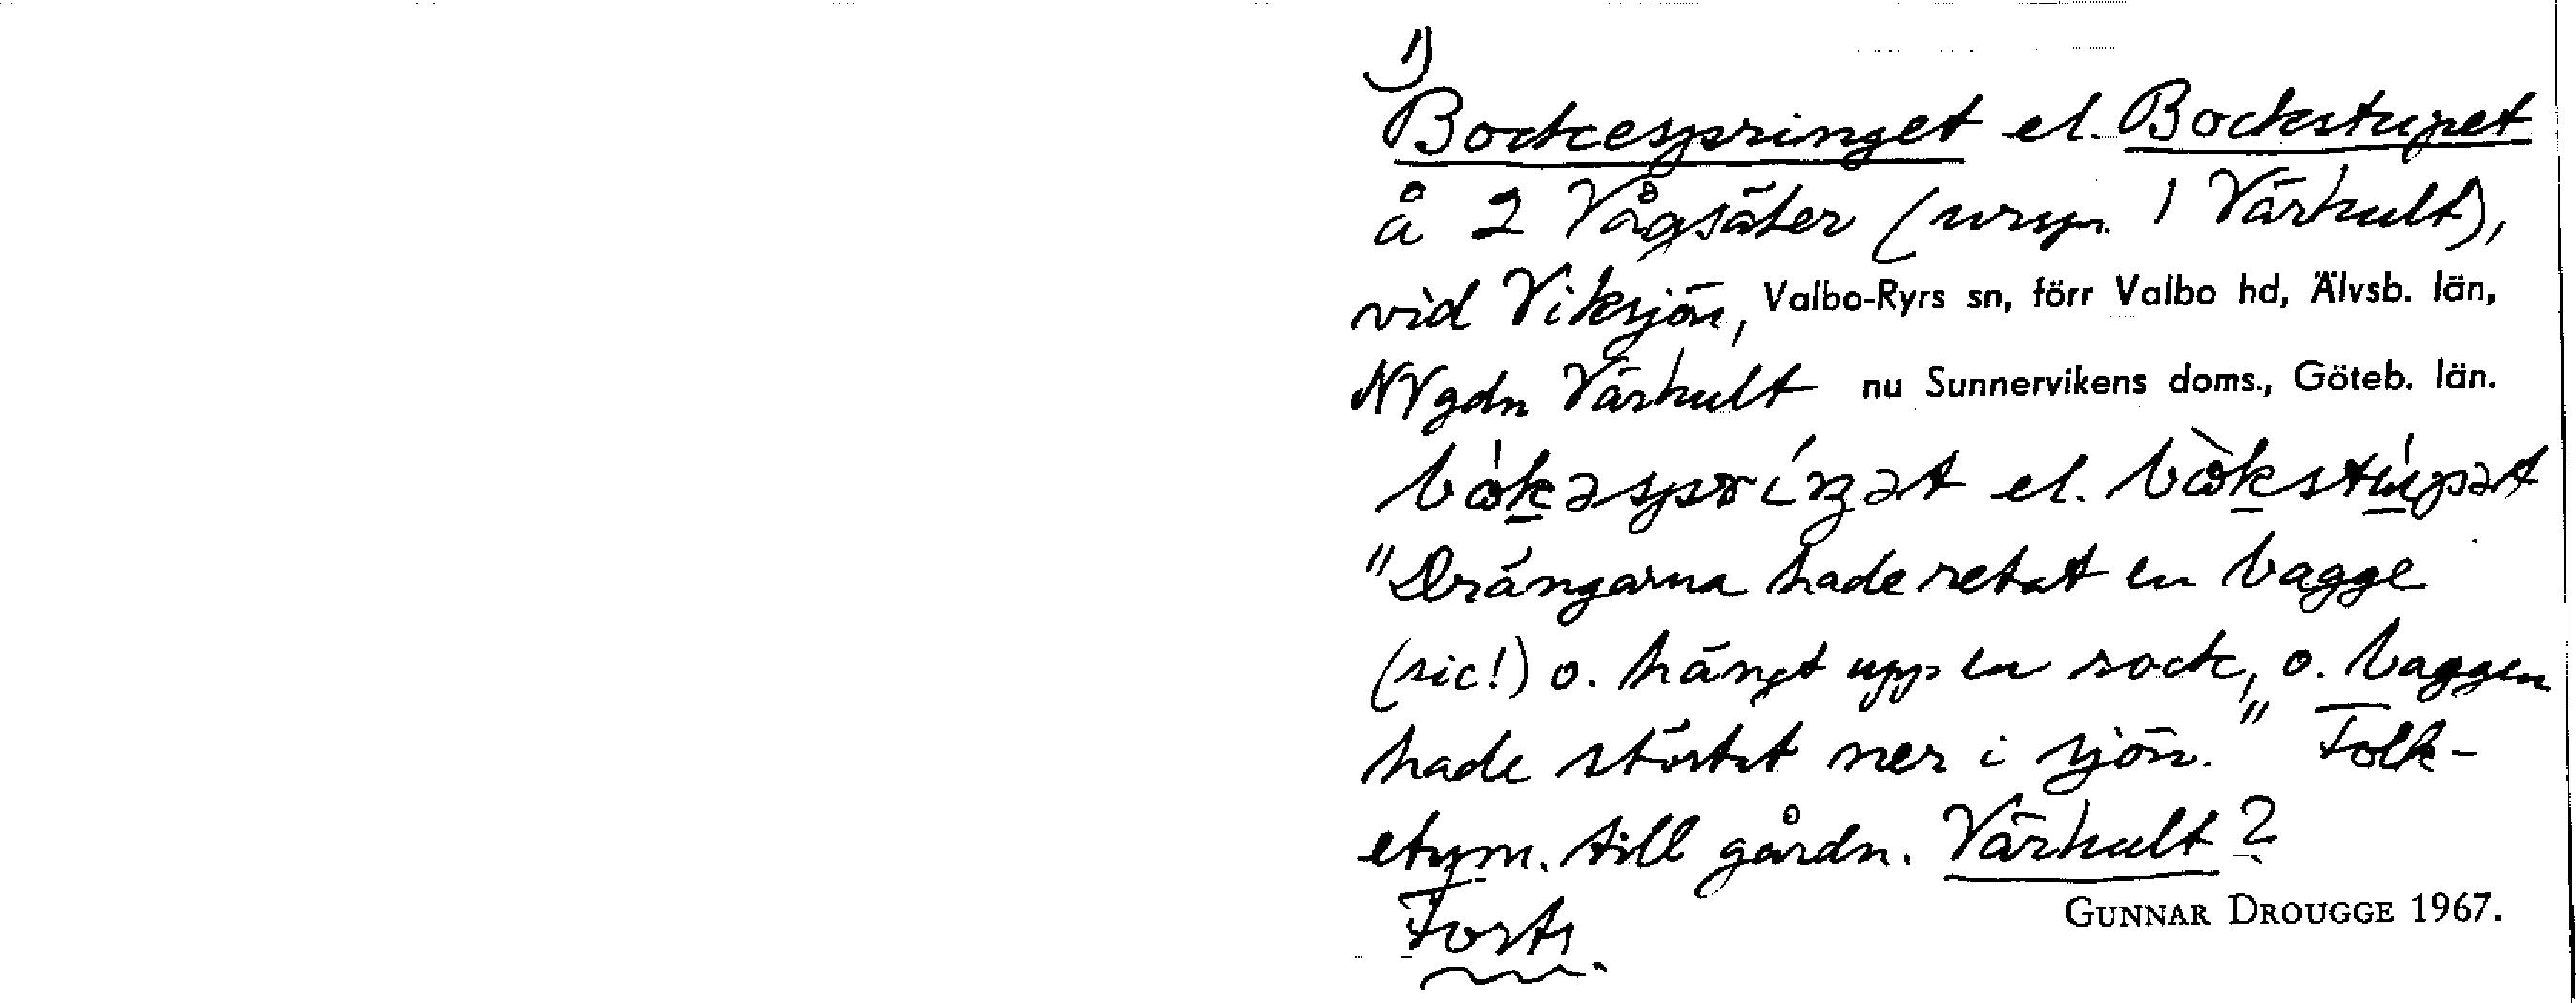 1)
Bockespringet el. Bockstupet
å 2 Vågsäter (urspr. 1 Värhult),
vid Viksjön, Valbo-Ryrs sn, förr Valbo hd, Älvsb. län,
NV gdn Värhult nu Sunnervikens doms., Göteb. län.
el.
"Drängarna hade retat en bagge
(sic!) o. hängt upp en rock, o. baggen
hade störtat ner i sjön." Folk-
etym. till gårdn. Värhult?
Forts.
GUNNAR DROUGGE 1967.